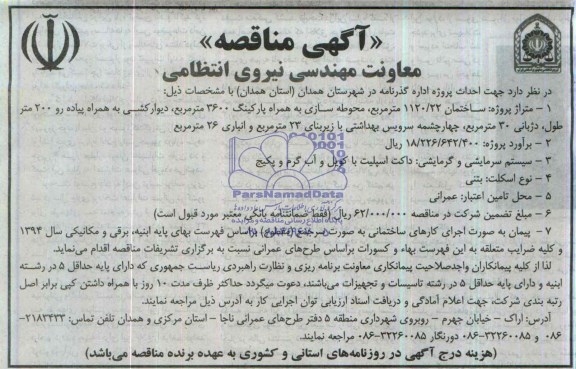 «آگهی مناقصه»
معاونت مهندسی نیروی انتظامی
در نظر دارد جهت احداث پروژه اداره گذرنامه در شهرستان همدان (استان همدان) با مشخصات ذیل:
۱ – متراژ پروژه: ساختمان ۱۱۲۰/۲۲ مترمربع، محوطه سازی به همراه پارکینگ ۳۶۰۰ مترمربع، دیوارکشی به همراه پیاده رو ۲۰۰ متر
طول، دژبانی ۳۰ مترمربع، چهارچشمه سرویس بهداشتی با زیربنای ۲۳ مترمربع و انباری ۲۶ مترمربع
۲ – برآورد پروژه: ۱۸/۲۲۶/۶۴۲/۴۰۰ ریال
۳ – سیستم سرمایشی و گرمایشی: داکت اسپلیت با کویل و آب گرم و پکیج
۴ – نوع اسکلت: بتنی
۵ – محل تامین اعتبار: عمرانی
۶ – مبلغ تضمین شرکت در مناقصه ۶۲/۰۰۰/۰۰۰ ریال (فقط ضمانتنامه بانکی معتبر مورد قبول است)
۷ – پیمان به صورت اجرای کارهای ساختمانی به صورت سرجمع (مقطوع) براساس فهرست بهای پایه ابنیه، برقی و مکانیکی سال ۱۳۹۴
و کلیه ضرایب متعلقه به این فهرست بهاء و کسورات براساس طرح‌های عمرانی نسبت به برگزاری تشریفات مناقصه اقدام می‌نماید.
لذا از کلیه پیمانکاران واجدصلاحیت پیمانکاری معاونت برنامه ریزی و نظارت راهبردی ریاست جمهوری که دارای پایه حداقل ۵ در رشته
ابنیه و دارای پایه حداقل ۵ در رشته تاسیسات و تجهیزات می‌باشند، دعوت میگردد حداکثر ظرف مدت ۱۰ روز با همراه داشتن کپی برابر اصل
رتبه بندی شرکت، جهت اعلام آمادگی و دریافت اسناد ارزیابی توان اجرایی کار به آدرس ذیل مراجعه نمایند.
آدرس: اراک – خیابان جهرم – روبروی شهرداری منطقه ۵ دفتر طرح‌های عمرانی ناجا – استان مرکزی و همدان تلفن تماس: ۲۱۸۳۴۳۳–
۰۸۶ و ۳۲۲۶۰۰۸۵–۰۸۶ دورنگار ۳۲۲۶۰۰۸۵–۰۸۶ مراجعه نمایند.
(هزینه درج آگهی در روزنامه‌های استانی و کشوری به عهده برنده مناقصه می‌باشد)
ParsNamadData